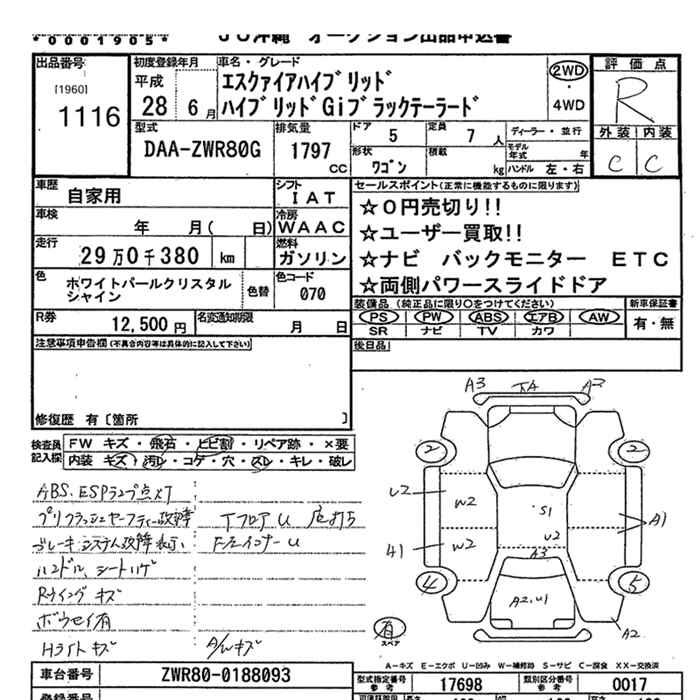 *0001905*
JU沖縄 オークション出品申込書
出品番号
[1960]
1116
初度登録年月
平成
28 6月
車名・グレード
エスクァイアハイブリッド
ハイブリッドGiブラックテーラード
2WD
・
4WD
評価点
R
外装 内装
C C
型式
DAA-ZWR80G
排気量
1797
CC
ドア 5
定員 7 人
形状 ワゴン
積載 kg
ディーラー・並行
モデル年式 年
ハンドル 左・右
車歴 自家用
シフト IAT
車検 年 月( 日)
冷房 WAAC
走行 29万0千380 km
燃料 ガソリン
色 ホワイトパールクリスタル
シャイン
色替
色コード 070
R券 12,500円
名変通知期限 月 日
セールスポイント(正常に機能するものに限ります)
☆0円売切り!!
☆ユーザー買取!!
☆ナビ バックモニター ETC
☆両側パワースライドドア
装備品 (純正品に限り○をつけてください)
PS PW ABS エアB AW
SR ナビ TV カワ
新車保証書
有・無
注意事項申告欄(不具合内容等は具体的に記入して下さい)
後日品
修復歴 有〔箇所 〕
検査員記入欄
FW キズ・飛石・ヒビ割・リペア跡・×要
内装 キズ・汚れ・コゲ・穴・スレ・キレ・破レ
ABS、ESPランプ点灯
プリクラッシュセーフティー故障
TフロアU
ブレーキシステム故障表示
ハンドル、シートハゲ
Rウィングキズ
HライトキズA/Wキズ
A3 A2
2 2
U2 W2 S1 A1
W2 U2
A3
4 5
A2,U1
A2
有
スペア
A-キズ E-エクボ U-凹み W-補修跡 S-サビ C-腐食 XX-交換済
車台番号 ZWR80-0188093
型式指定番号 参考 17698
類別区分番号 参考 0017